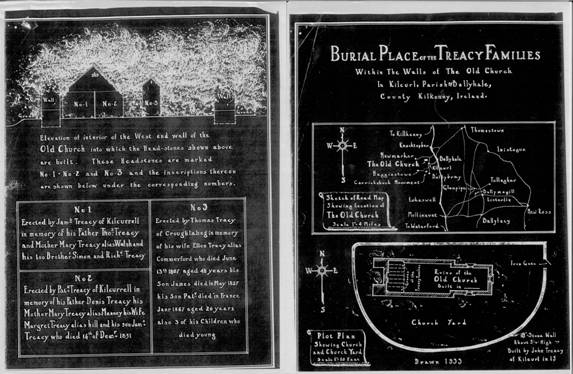 Wall
No·1
No·2
No·3
Wall
Elevation of interior of the West end wall of the
Old Church into which the Head-stones shown above
are built. These Headstones are marked
No·1-No·2 and No·3 and the inscriptions thereon
are shown below under the corresponding numbers.
No 1
Erected by Jams Treacy of Kilcurrell
in memory of his Father Thos Treacy
and Mother Mary Treacy alias Walsh and
his two Brothers Simon and Richd Treacy
No 2
Erected by Patk Treacy of Kilcurrell in
memory of his Father Denis Treacy his
Mother Mary Treacy alias Manny his Wife
Margret Treacy alias hill and his son Jams
Treacy who died 14th of Decmr 1831
No 3
Erected by Thomas Tracy
of Croughlabeg in memory
of his wife Ellen Tracy alias
Commerford who died June
13th 1807 aged 48 years his
Son James died in May 1827
his Son Patk died in France
Jany 1867 aged 20 years
also 3 of his Children who
died young
BURIAL PLACE OF THE TREACY FAMILIES
Within The Walls of The Old Church
In Kilcurl, Parish of Ballyhale,
County Kilkenny, Ireland.
N
W
E
S
To Kilkenny
Thomastown
Knocktopher
Inistogue
Newmarket
The Old Church
Ballyhale
Kilcurl
Carrickshock Monument
Tullagher
Ballynegill
Listerlin
Lukeswell
Mullinavat
Ballylacy
New Ross
To Waterford
Sketch of Road Map
Showing Location of
The Old Church
Scale 1"=4 Miles
N
W
E
S
Iron Gate
Ruins of the
Old Church
Built in
Church Yard
Plot Plan
Showing Church
and Church Yard
Drawn 1933
Stone Wall
Above Five High
Built by John Treacy
of Kilcurl in 18